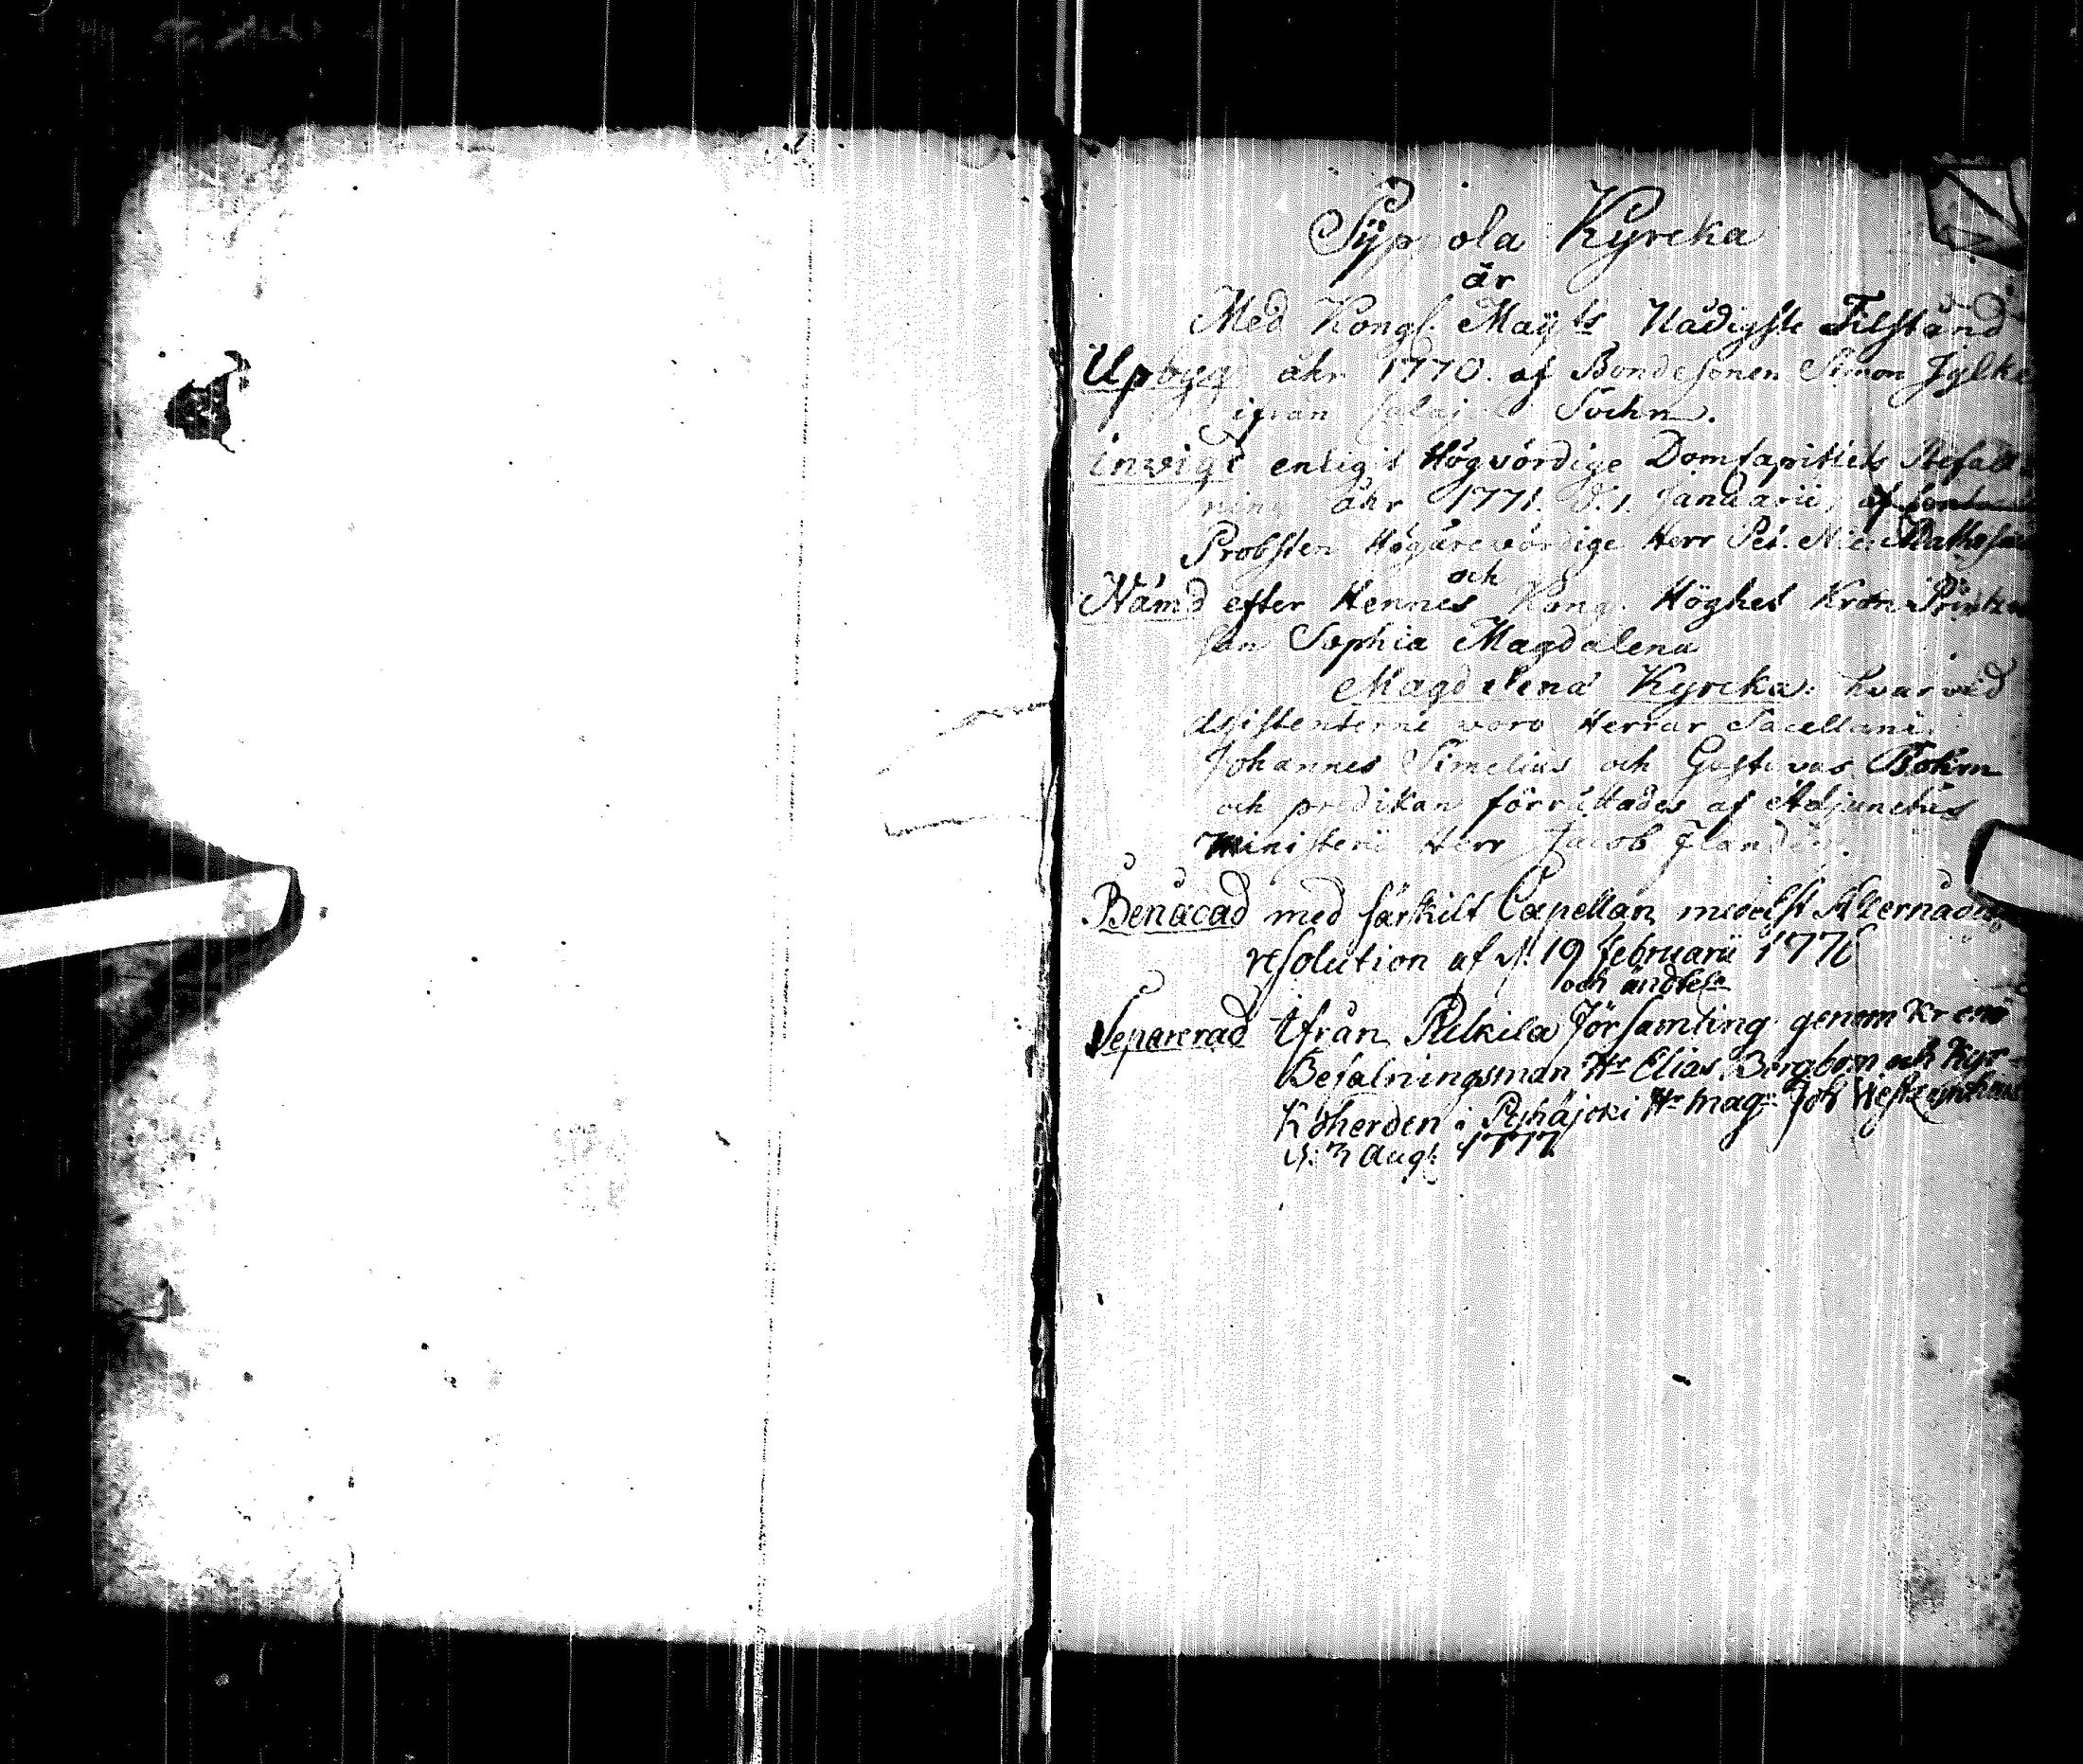 Sÿp ola Kyrcka
är
Med Kongl. Maÿts Nådigste Tilstånd
Upbygd åhr 1770. af Bondesonen Simon Jylkä
ifrån Sochn.
invigd enligit Högvördige Domcapitlets Befall-
ning åhr 1771. d. 1. Januarii, af
Probsten Högärevördige Herr Pet. Nic. Mathesius
och
Nämd efter Hennes Kong. Höghet Kron Printzes
san Sophia Magdalena
Magdalena Kyrcka: hvarvid
Assistenterne voro Herrar Sacellani
Johannes Simelius och Gustavus Bohm
och predikan förrättades af Adjunctus
Ministerii Herr Jacob Flander.
Benåcad med särkilt Capellan medelst
resolution af d. 19 februarii 1776
och ändtel.
Separerad ifrån Pulkila Församling genom Krono
Befalningsman Hr Elias Bergbom och Kyr-
Koherden i Pyhäjoki Hr Mag. Joh Westzynthius
d. 3 Aug. 1777.